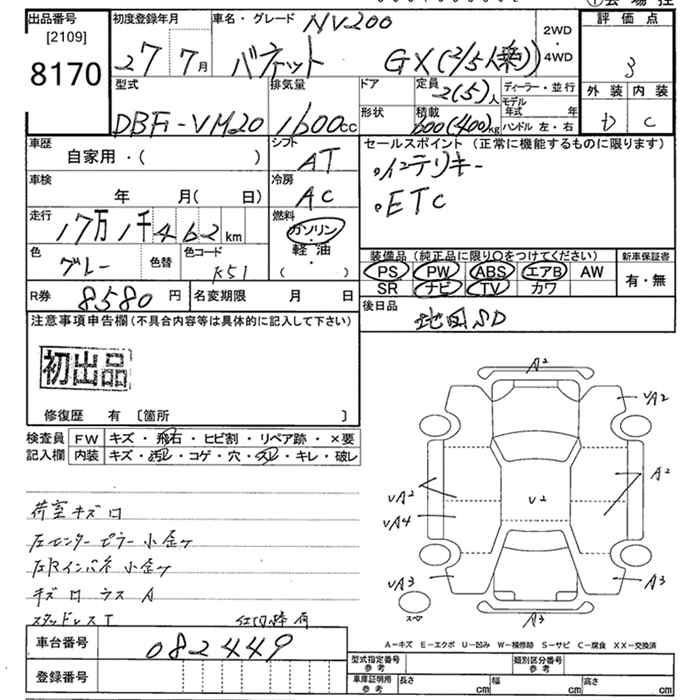 出品番号
[2109]
8170
初度登録年月
27 7月
車名・グレード
NV200
バネット GX(2/5人乗)
2WD
・
4WD
評価点
3
外装 内装
D C
型式
DBF-VM20
排気量
1600cc
ドア
形状
定員
2(5)人
積載
600(400)kg
ディーラー・並行
モデル
年式 年
ハンドル 左・右
車歴
自家用・( )
シフト
AT
セールスポイント (正常に機能するものに限ります)
・インテリキー
・ETC
車検
年 月( 日)
冷房
AC
走行
17万1千462km
燃料
ガソリン
・
軽油
・
( )
色
グレー
色替
色コード
K51
装備品(純正品に限り○をつけてください)
新車保証書
PS PW ABS エアB AW
SR ナビ TV カワ
有・無
R券
8580円
名変期限 月 日
後日品
地図SD
注意事項申告欄(不具合内容等は具体的に記入して下さい)
初出品
修復歴 有 〔箇所 〕
検査員
記入欄
FW キズ・飛石・ヒビ割・リペア跡・×要
内装 キズ・汚れ・コゲ・穴・スレ・キレ・破レ
荷室キズロ
左センターピラー小歪ケ
左Rインパネ小歪ケ
キズロラスA
スタッドレスT
A2
UA2
UA2
A2
U2
UA4
UA3
A3
スペア
A3
A-キズ E-エクボ U-凹み W-補修跡 S-サビ C-腐食 XX-交換済
車台番号
082449
登録番号
型式指定番号
参考
類別区分番号
参考
車庫証明用
参考
長さ cm 幅 cm 高さ cm